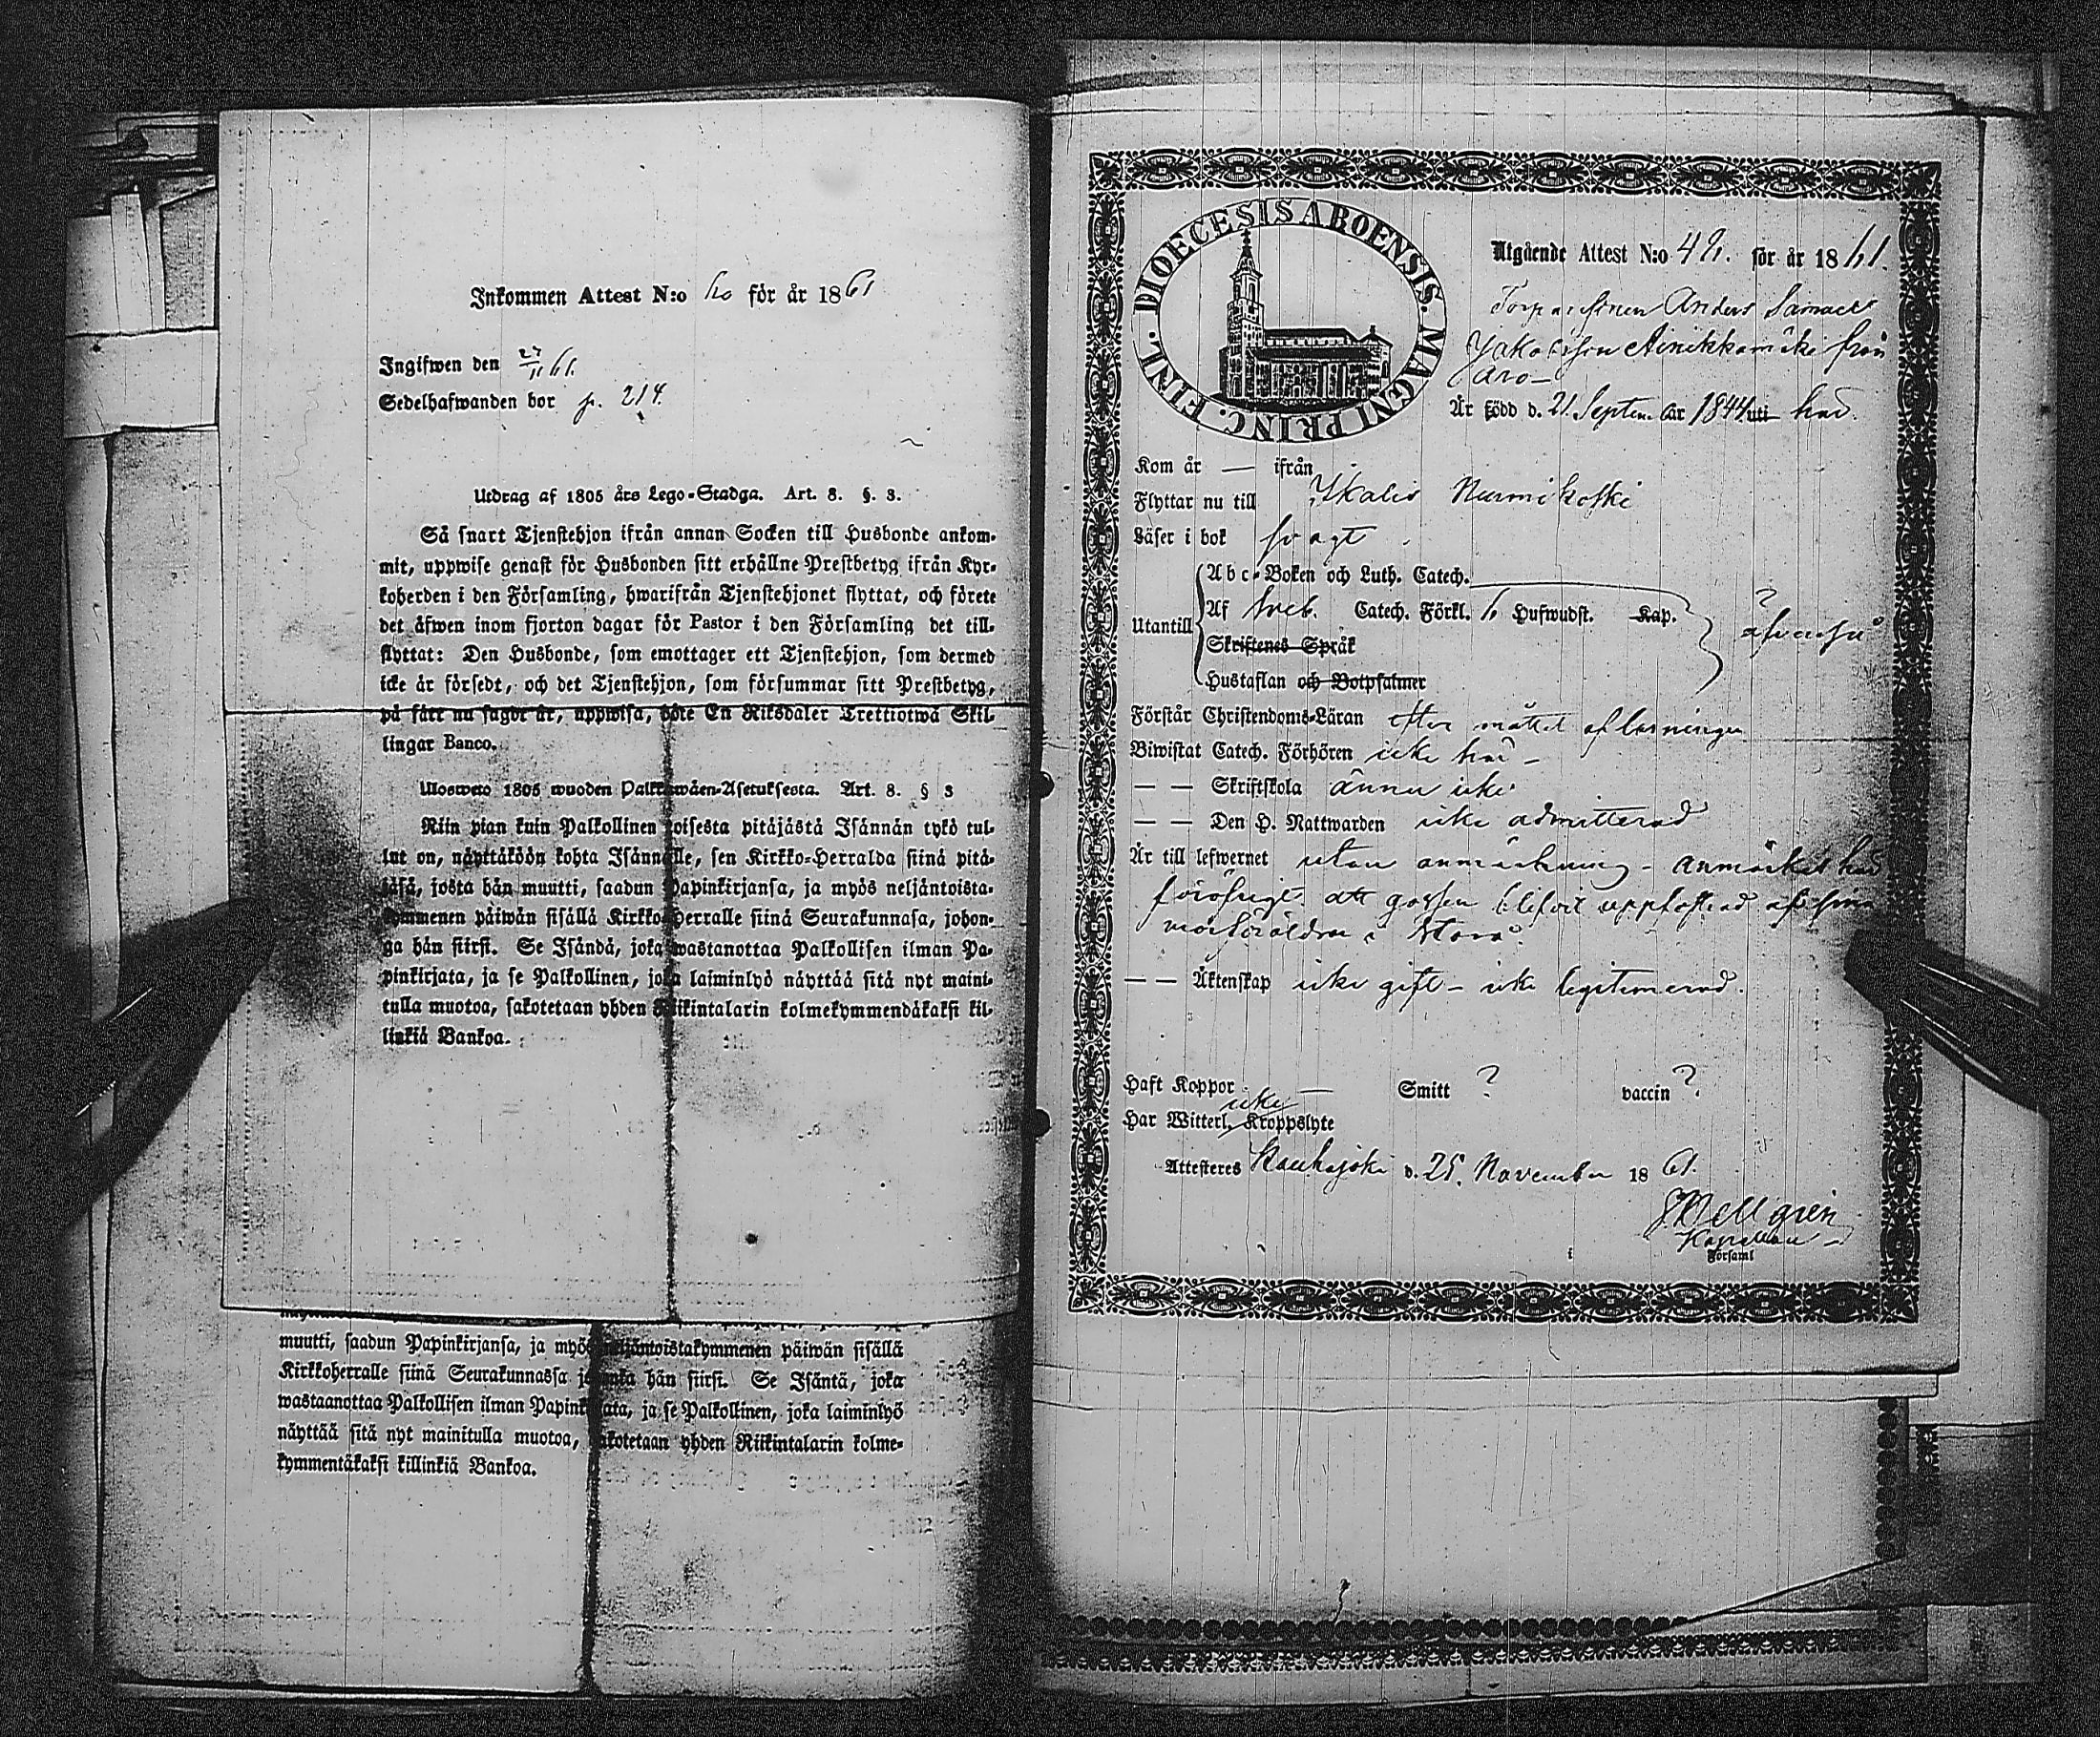 Inkommen Attest N:o för år 1861
Ingifwen den 27/11 61.
Sedelhafwanden bor p. 214.
Utdrag af 1805 års Lego-Stadga. Art. 8. §. 3.
Så snart Tjenstehjon ifrån annan Socken till Husbonde ankom-
mit, uppwise genast för Husbonden sitt erhållne Prestbetyg ifrån Kyr-
koherden i den Församling, hwarifrån Tjenstehjonet flyttat, och förete
det åfwen inom fjorton dagar för Pastor i den Församling det till-
flyttat: Den Husbonde, som emottager ett Tjenstehjon, som dermed
icke är försedt, och det Tjenstehjon, som försummar sitt Prestbetyg,
på sätt nu sagdt är, uppwisa, böte En Riksdaler Trettiotwå Skil-
lingar Banco.
Ulosweto 1805 wuoden Palkkawäen-Asetuksesta. Art. 8. § 3
Niin pian kuin Palkollinen toisesta pitäjästä Isännän tykö tul-
lut on, näyttäköön kohta Isännälle, sen Kirkko-Herralda siinä pitä-
jäsä, josta hän muutti, saadun Papinkirjansa, ja myös neljäntoista-
kymmenen päiwän sisällä Kirkko-Herralle siinä Seurakunnasa, johon-
ga hän siirsi. Se Isändä, joka wastanottaa Palkollisen ilman Pa-
pinkirjata, ja se Palkollinen, joka laiminlyö näyttää sitä nyt maini-
tulla muotoa, sakotetaan yhden Riikintalarin kolmekymmendäkaksi kil-
linkiä Bankoa.
muutti, saadun Papinkirjansa, ja myös neljäntoistakymmenen päiwän sisällä
Kirkkoherralle siinä Seurakunnassa johonka hän siirsi. Se Isäntä, joka
wastaanottaa Palkollisen ilman Papinkirjata, ja se Palkollinen, joka laiminlyö
näyttää sitä nyt mainitulla muotoa, sakotetaan yhden Riikintalarin kolme-
kymmentäkaksi killinkiä Bankoa.
DIOECESIS ABOENSIS. MAGNI PRINC. FINL.
Utgående Attest N:o för år 1861.
Anders Samuel
från
Aro
Är född d. 21. Septem. år 1844 uti här.
Kom år — ifrån
Flyttar nu till Ikalis Nurmikoski
Läser i bok svagt
Abc-Boken och Luth. Catech.
Af Sveb. Catech. Förkl. Hufwudst. Kap. ?
Utantill
Skriftenes Språk
Hustaflan och Botpsalmer
Förstår Christendoms-Läran efter måttet af läsningen
Biwistat Catech. Förhören icke här —
— — Skriftskola ännu icke
— — Den H. Nattwarden icke admitterad
Är till lefwernet utan anmärkning — anmärkes här
föröfrigt att gossen blifvit uppfostrad af sina
morföräldrar i
— — Äktenskap icke gift — icke legitimerad.
Haft Koppor — Smitt ? vaccin ?
icke
Har Witterl. Kroppslyte
Attesteres Kauhajoki d. 25. November 1861.
Kapellan
i Församl